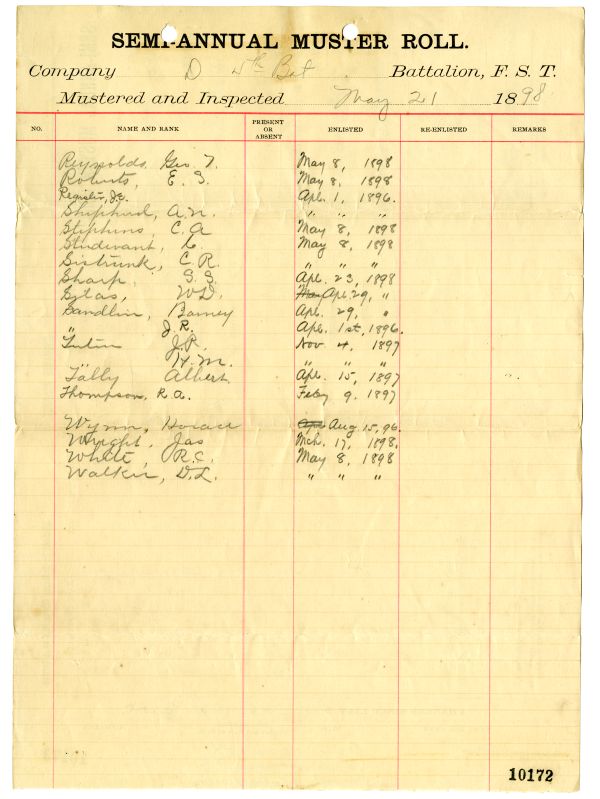 SEMI-ANNUAL MUSTER ROLL.
Company D 4th Bat Battalion, F. S. T.
Mustered and Inspected May 21 1898
NO. NAME AND RANK PRESENT OR ABSENT ENLISTED RE-ENLISTED REMARKS
Reynolds, Geo. T. May 8, 1898
Roberts, E. S. May 8, 1898
Register, J.C. Apl. 1, 1896.
Shepherd, A.N. " " "
Stephens, C. A May 8, 1898
Studivant, L. May 8, 1898
Sistrunk, C. R. " " "
Sharp, S. S. Apl. 23, 1898
Silas, W.D. May Apl 29, "
Sandlin, Barney Apl. 29, "
" J. R. Apl. 1st, 1896.
J.R. Nov. 4, 1897
" H. M. " " "
Tally Albert Apl. 15, 1897
Thompson, R. A. Feby 9, 1897
Wynn, Horace Aug. 15, 96.
Wright, Jas Mch. 17, 1898.
White, R.C. May 8, 1898
Walker, D.L. " " "
10172